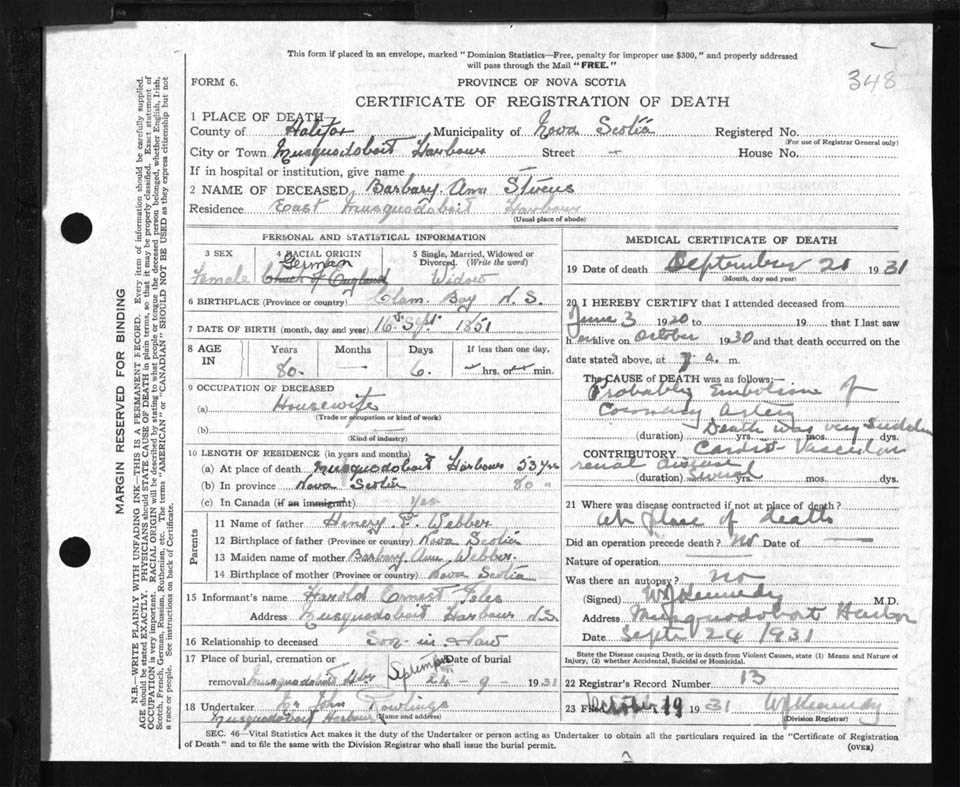 This form if placed in an envelope, marked "Dominion Statistics—Free, penalty for improper use $300," and properly addressed
will pass through the Mail "FREE."
348
FORM 6.
PROVINCE OF NOVA SCOTIA
CERTIFICATE OF REGISTRATION OF DEATH
1 PLACE OF DEATH
County of Halifax Municipality of Nova Scotia Registered No.
(For use of Registrar General only)
City or Town Musquodoboit Harbour Street — House No.
If in hospital or institution, give name
2 NAME OF DECEASED Barbary Ann Stevens
Residence East Musquodoboit Harbour
(Usual place of abode)
PERSONAL AND STATISTICAL INFORMATION
3 SEX 4 RACIAL ORIGIN 5 Single, Married, Widowed or
Divorced. (Write the word)
German
Female Church of England Widow
6 BIRTHPLACE (Province or country) Clam Bay N.S.
7 DATE OF BIRTH (month, day and year) 16th Sept 1851
8 AGE IN Years Months Days If less than one day,
80 — 6 hrs. or min.
9 OCCUPATION OF DECEASED
(a) Housewife
(Trade or occupation or kind of work)
(b) —
(Kind of industry)
10 LENGTH OF RESIDENCE (in years and months)
(a) At place of death Musquodoboit Harbour 53 yrs
(b) In province Nova Scotia 80 "
(c) In Canada (if an immigrant) Yes
Parents
11 Name of father Henry F. Webber
12 Birthplace of father (Province or country) Nova Scotia
13 Maiden name of mother Barbary Ann Webber
14 Birthplace of mother (Province or country) Nova Scotia
15 Informant's name Harold Ernest
Address Musquodoboit Harbour N.S.
16 Relationship to deceased Son in Law
17 Place of burial, cremation or Date of burial
removal Musquodoboit Hbr September 24 - 9 - 1931
18 Undertaker John Rowlings
Musquodoboit Harbour (Name and address)
MEDICAL CERTIFICATE OF DEATH
19 Date of death September 21 1931
(Month, day and year)
20 I HEREBY CERTIFY that I attended deceased from
June 3 1920 to 19 that I last saw
her alive on October 1930 and that death occurred on the
date stated above, at 7 a. m.
The CAUSE OF DEATH was as follows:
Probably Embolism of
Coronary Artery
Death was very sudden
(duration) yrs. mos. dys.
CONTRIBUTORY Cardio-Vascular
renal disease
(duration) Several yrs. mos. dys.
21 Where was disease contracted if not at place of death?
At place of death
Did an operation precede death? No Date of —
Nature of operation
Was there an autopsy? no
(Signed) WJ Kennedy M.D.
Address Musquodoboit Harbor
Date Sept 24 1931
State the Disease causing Death, or in death from Violent Causes, state (1) Means and Nature of
Injury, (2) whether Accidental, Suicidal or Homicidal.
22 Registrar's Record Number 13
23 October 19 1931 WJ Kennedy
(Division Registrar)
SEC. 46—Vital Statistics Act makes it the duty of the Undertaker or person acting as Undertaker to obtain all the particulars required in the "Certificate of Registration
of Death" and to file the same with the Division Registrar who shall issue the burial permit.
(OVER)
MARGIN RESERVED FOR BINDING
N.B.—WRITE PLAINLY WITH UNFADING INK—THIS IS A PERMANENT RECORD. Every item of information should be carefully supplied.
AGE should be stated EXACTLY. PHYSICIANS should STATE CAUSE OF DEATH in plain terms, so that it may be properly classified. Exact statement of
OCCUPATION is very important. RACIAL ORIGIN will be described by stating to what people or tongue the deceased person belonged, whether English, Irish,
Scotch, French, German, Russian, Ruthenian, etc. The terms "AMERICAN" or "CANADIAN" SHOULD NOT BE USED as they express citizenship but not
a race or people. See instructions on back of Certificate.